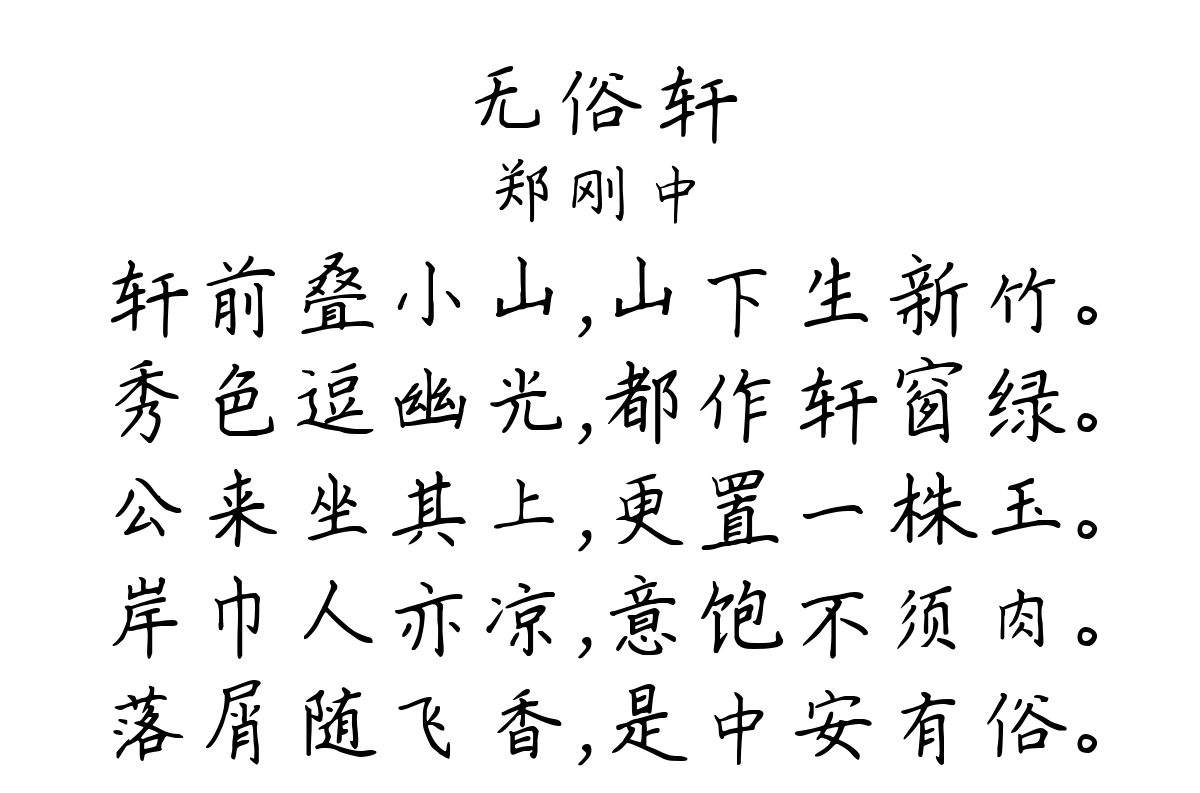 无俗轩
郑刚中
轩前叠小山,山下生新竹。
秀色逗幽光,都作轩窗绿。
公来坐其上,更置一株玉。
岸巾人亦凉,意饱不须肉。
落屑随飞香,是中安有俗。